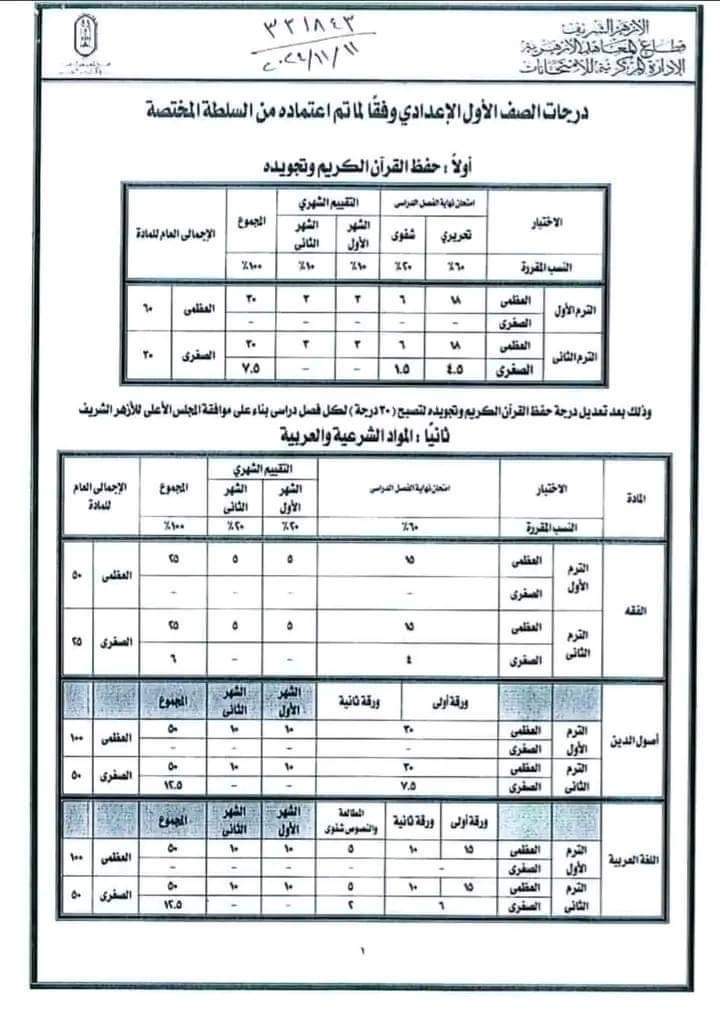 الأزهر الشريف
قطاع المعاهد الأزهرية
الإدارة المركزية للامتحانات
٣٢١٨٤٣
٢٠٢٤/١١/١١
درجات الصف الأول الإعدادي وفقًا لما تم اعتماده من السلطة المختصة
أولاً : حفظ القرآن الكريم وتجويده
الاختبار امتحان نهاية الفصل الدراسى التقييم الشهري المجموع الإجمالى العام للمادة
تحريري شفوى الشهر الأول الشهر الثانى
النسب المقررة ٦٠٪ ٢٠٪ ١٠٪ ١٠٪ ١٠٠٪
الترم الأول العظمى ١٨ ٦ ٣ ٣ ٣٠ العظمى ٦٠
الصغرى - - - - -
الترم الثانى العظمى ١٨ ٦ ٣ ٣ ٣٠ الصغرى ٣٠
الصغرى ٤.٥ ١.٥ - - ٧.٥
وذلك بعد تعديل درجة حفظ القرآن الكريم وتجويده لتصبح (٣٠ درجة) لكل فصل دراسى بناء على موافقة المجلس الأعلى للأزهر الشريف
ثانيًا : المواد الشرعية والعربية
المادة الاختبار امتحان نهاية الفصل الدراسى التقييم الشهري المجموع الإجمالى العام للمادة
الشهر الأول الشهر الثانى
النسب المقررة ٦٠٪ ٢٠٪ ٢٠٪ ١٠٠٪
الفقه الترم الأول العظمى ١٥ ٥ ٥ ٢٥ العظمى ٥٠
الصغرى - - - -
الترم الثانى العظمى ١٥ ٥ ٥ ٢٥ الصغرى ٢٥
الصغرى ٤ - - ٦
أصول الدين ورقة أولى ورقة ثانية الشهر الأول الشهر الثانى المجموع
الترم الأول العظمى ٣٠ ١٠ ١٠ ٥٠ العظمى ١٠٠
الصغرى - - - -
الترم الثانى العظمى ٣٠ ١٠ ١٠ ٥٠ الصغرى ٥٠
الصغرى ٧.٥ - - ١٢.٥
اللغة العربية ورقة أولى ورقة ثانية المطالعة والنصوص شفوى الشهر الأول الشهر الثانى المجموع
الترم الأول العظمى ١٥ ١٠ ٥ ١٠ ١٠ ٥٠ العظمى ١٠٠
الصغرى - - - - -
الترم الثانى العظمى ١٥ ١٠ ٥ ١٠ ١٠ ٥٠ الصغرى ٥٠
الصغرى ٦ ٢ - - ١٢.٥
١